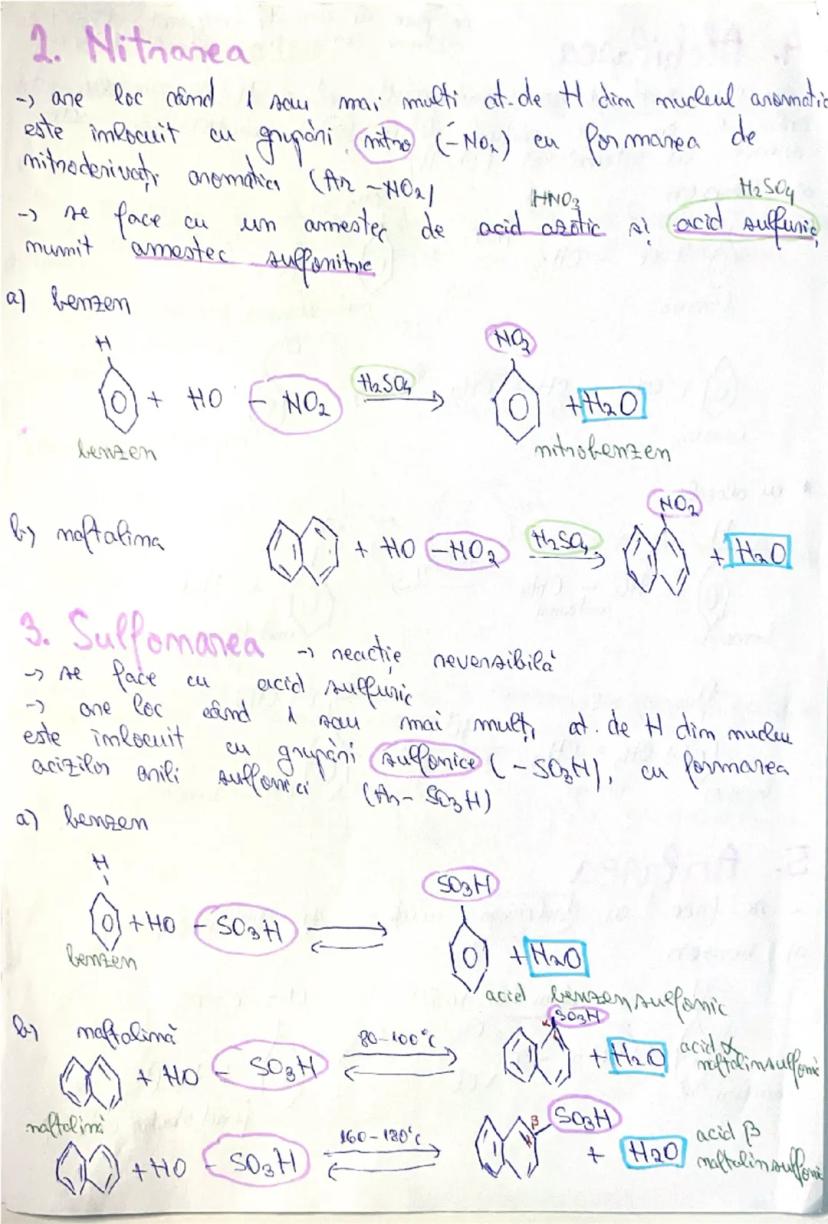 2. Nitrarea
→ are loc când 1 sau mai multi at. de H din nucleul aromatic
este înlocuit cu grupări nitro (-NO2) cu formarea de
nitroderivați aromatici (Ar -NO2)
HNO3 H2SO4
→ se face cu un amestec de acid azotic și acid sulfuric,
numit amestec sulfonitric
a) benzen
H NO2
+ HO - NO2 H2SO4 + H2O
benzen nitrobenzen
NO2
b) naftalina + HO -NO2 H2SO4 + H2O
3. Sulfonarea → reacție reversibilă
→ se face cu acid sulfuric
→ are loc când 1 sau mai mulți at. de H din nucleu
este înlocuit cu grupări sulfonice (-SO3H), cu formarea
acizilor arili sulfonici (Ar- SO3H)
a) benzen
H SO3H
+ HO - SO3H + H2O
benzen
acid benzensulfonic
b) naftalină SO3H
+ HO - SO3H 80-100°C + H2O acid α
naftalinsulfonic
naftalină β SO3H
+ HO - SO3H 160-180°C α + H2O acid β
naftalinsulfonic